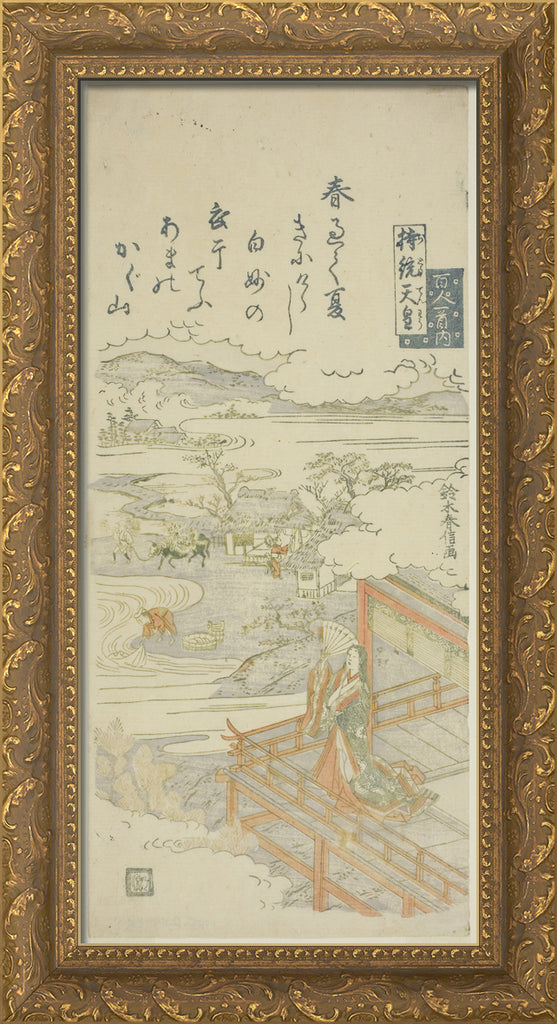 百人一首内
持統天皇
春過て夏
きにけらし
白妙の
衣干てふ
あまの
かぐ山
鈴木春信画